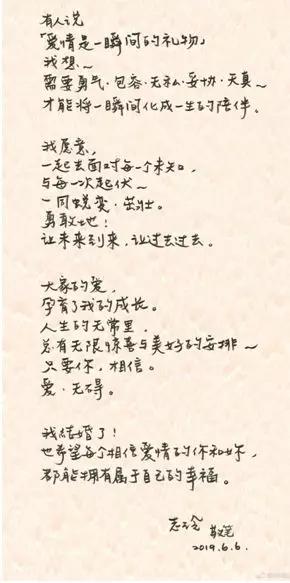 有人说
「爱情是一瞬间的礼物」
我想~
需要勇气·包容·无私·妥协·天真~
才能将一瞬间化成一生的陪伴。
我愿意，
一起去面对每一个未知，
与每一次起伏~
一同蜕变·茁壮。
勇敢地！
让未来到来，让过去过去。
大家的爱，
孕育了我的成长。
人生的无常里，
总有无限惊喜与美好的安排~
只要你，相信。
爱·无碍。
我結婚了！
也希望每个相信爱情的你和妳，
都能拥有属于自己的幸福。
志玲
2019.6.6.